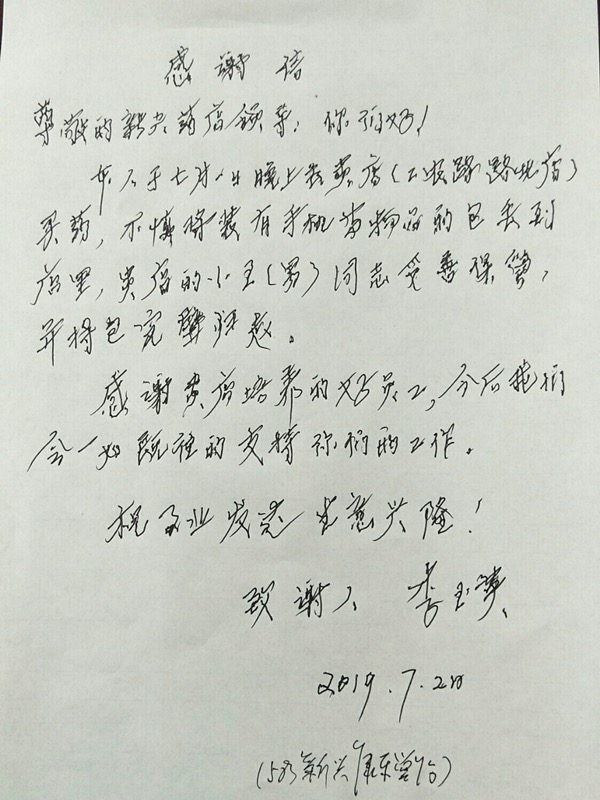 感谢信
尊敬的新兴药店领导：你们好！
本人于七月八日晚上去贵店（工农路路北店）
买药，不慎将装有手机等物品的包丢到
店里，贵店的小王（男）同志妥善保管，
并将包完璧归赵。
感谢贵店培养的好员工，今后我们
会一如既往的支持你们的工作。
祝事业发达 生意兴隆！
致谢人 李玉
2019.7.20
（583新兴店）